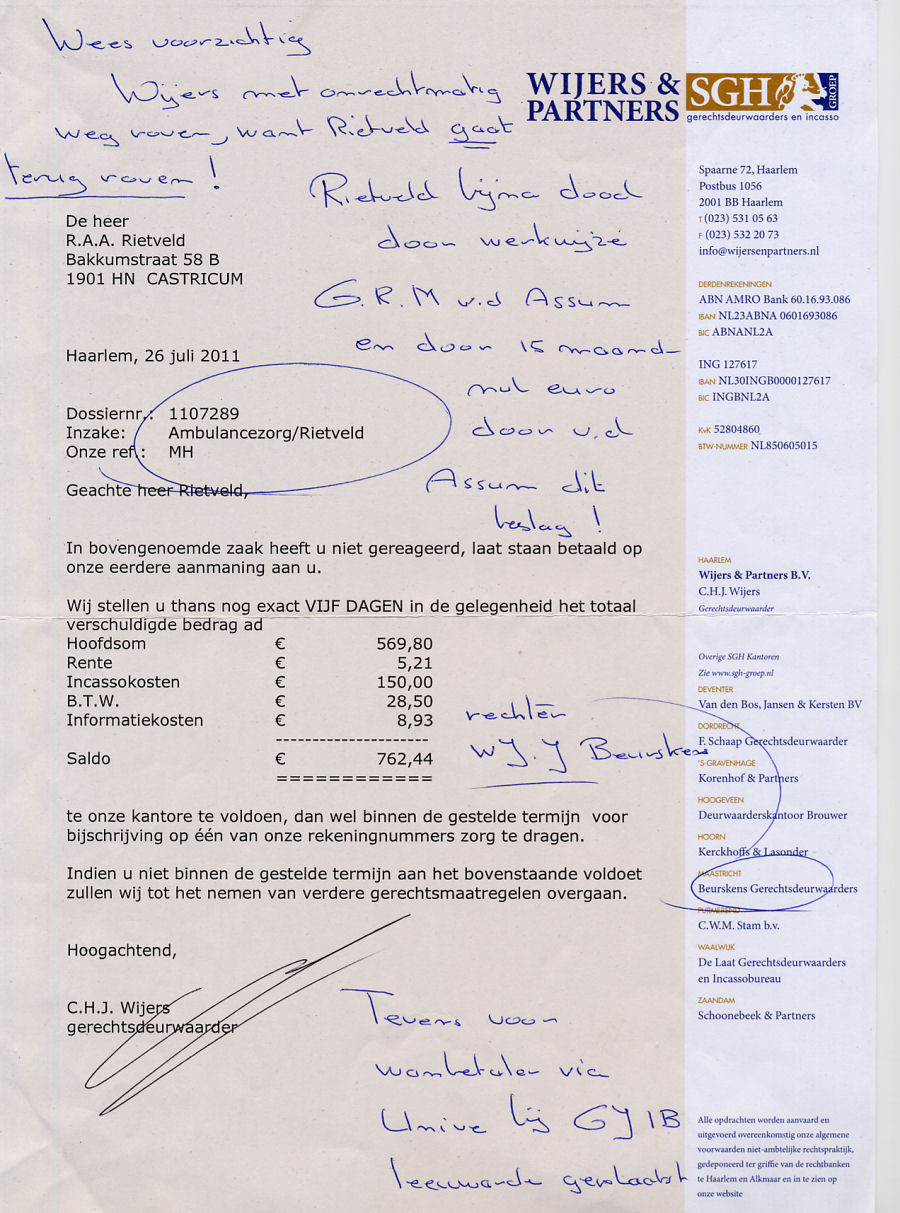 Wees voorzichtig
Wijers met onrechtmatig
weg roven, want Rietveld gaat
terug roven!
WIJERS &
PARTNERS
SGH
GROEP
gerechtsdeurwaarders en incasso
Rietveld bijna dood
door werkwijze
G.R.M v.d Assum
en door 15 maand-
nul euro
door v.d
Assum dit
beslag!
De heer
R.A.A. Rietveld
Bakkumstraat 58 B
1901 HN CASTRICUM
Haarlem, 26 juli 2011
Dossiernr.: 1107289
Inzake: Ambulancezorg/Rietveld
Onze ref.: MH
Geachte heer Rietveld,
In bovengenoemde zaak heeft u niet gereageerd, laat staan betaald op
onze eerdere aanmaning aan u.
Wij stellen u thans nog exact VIJF DAGEN in de gelegenheid het totaal
verschuldigde bedrag ad
Hoofdsom € 569,80
Rente € 5,21
Incassokosten € 150,00
B.T.W. € 28,50
Informatiekosten € 8,93
--------------------
Saldo € 762,44
============
rechter
W.J.J Beurskens
te onze kantore te voldoen, dan wel binnen de gestelde termijn voor
bijschrijving op één van onze rekeningnummers zorg te dragen.
Indien u niet binnen de gestelde termijn aan het bovenstaande voldoet
zullen wij tot het nemen van verdere gerechtsmaatregelen overgaan.
Hoogachtend,
C.H.J. Wijers
gerechtsdeurwaarder
Tevens voor
wanbetaler via
Unive bij CJIB
leeuwarde geplaatst
Spaarne 72, Haarlem
Postbus 1056
2001 BB Haarlem
T (023) 531 05 63
F (023) 532 20 73
info@wijersenpartners.nl
DERDENREKENINGEN
ABN AMRO Bank 60.16.93.086
IBAN NL23ABNA 0601693086
BIC ABNANL2A
ING 127617
IBAN NL30INGB0000127617
BIC INGBNL2A
KvK 52804860
BTW-NUMMER NL850605015
HAARLEM
Wijers & Partners B.V.
C.H.J. Wijers
Gerechtsdeurwaarder
Overige SGH Kantoren
Zie www.sgh-groep.nl
DEVENTER
Van den Bos, Jansen & Kersten BV
DORDRECHT
F. Schaap Gerechtsdeurwaarder
'S-GRAVENHAGE
Korenhof & Partners
HOOGEVEEN
Deurwaarderskantoor Brouwer
HOORN
Kerckhoffs & Lasonder
MAASTRICHT
Beurskens Gerechtsdeurwaarders
PURMEREND
C.W.M. Stam b.v.
WAALWIJK
De Laat Gerechtsdeurwaarders
en Incassobureau
ZAANDAM
Schoonebeek & Partners
Alle opdrachten worden aanvaard en
uitgevoerd overeenkomstig onze algemene
voorwaarden niet-ambtelijke rechtspraktijk,
gedeponeerd ter griffie van de rechtbanken
te Haarlem en Alkmaar en in te zien op
onze website